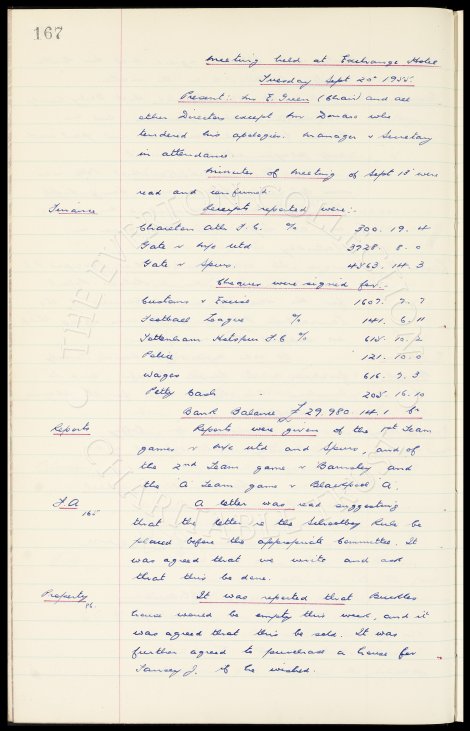 167
Meeting held at Exchange Hotel
Tuesday Sept 20th 1955
Present:- Mr E. Green (Chair) and all
other Directors except Mr Donaso who
tendered his apologies. Manager & Secretary
in attendance.
Minutes of meeting of Sept 13th were
read and confirmed
Finance Receipts reported were:-
Charlton Ath. F.C. % 300. 19. 4
Gate v M/c Utd 3728. 8. 0
Gate v Spurs. 4363. 14. 3
Cheques were signed for:-
Customs & Excise 1607. 7. 7
Football League % 141. 6. 11
Tottenham Hotspur F.C % 615. 10. 2
Police 121. 10. 0
Wages 616. 7. 3
Petty Cash 205. 16. 10
Bank Balance £29,980. 14. 1
Reports Reports were given of the 1st Team
games v M/c Utd and Spurs, and of
the 2nd Team game v Barnsley and
the 'A' Team game v Blackpool 'A'.
F.A 165 A letter was read suggesting
that the letter re the Schoolboy Rule be
placed before the appropriate Committee. It
was agreed that we write and ask
that this be done.
Property It was reported that Buckles
house would be empty this week, and it
was agreed that this be sold. It was
further agreed to purchase a house for
Tansey J. if he wished.
THE EVERTON COLLECTION
CHARITABLE